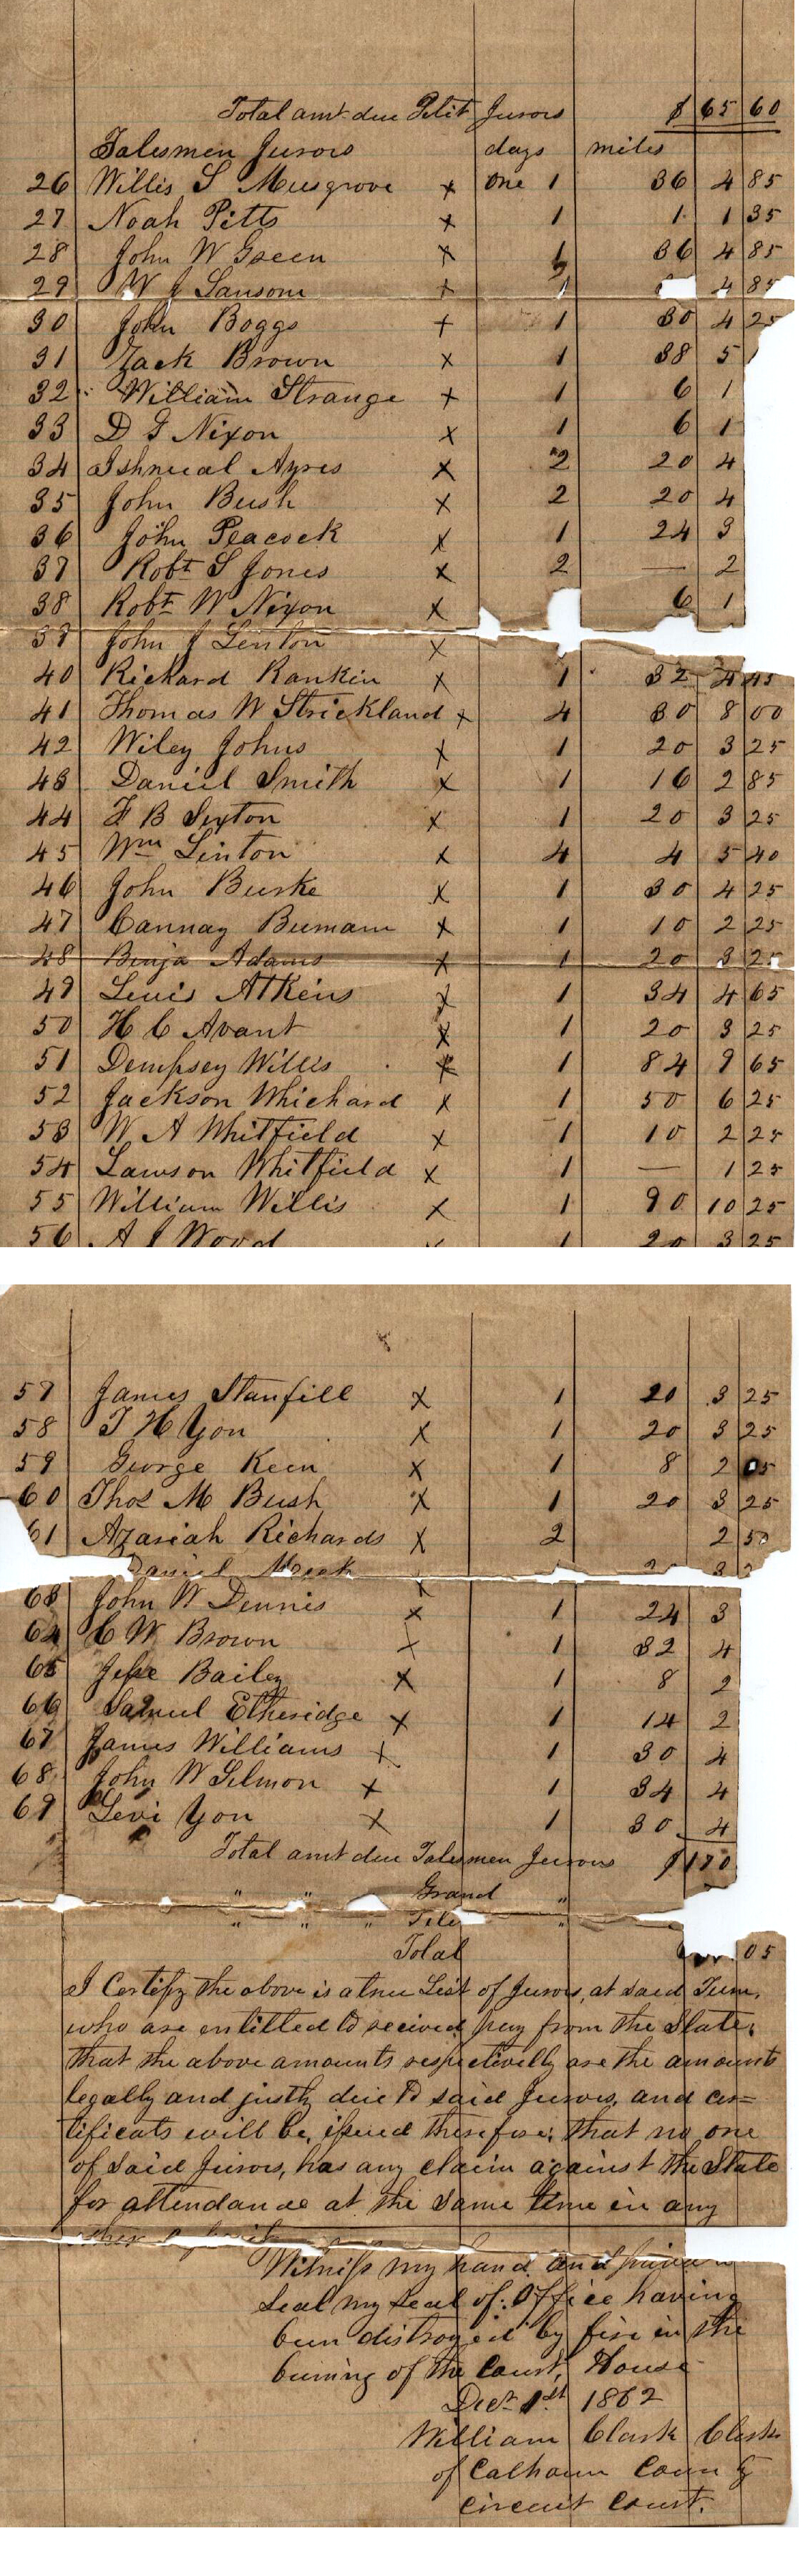 Total amt due Petit Jurors $ 65 60
Talesmen Jurors days miles
26 Willis S Musgrove x one 1 36 4 85
27 Noah Pitts x 1 1 1 35
28 John W Green x 1 36 4 85
29 W J Sansom x 1 4 85
30 John Boggs x 1 30 4 25
31 Zack Brown x 1 38 5
32 William Strange x 1 6 1
33 D G Nixon x 1 6 1
34 Ishmeal Ayres x 2 20 4
35 John Bush x 2 20 4
36 John Peacock x 1 24 3
37 Robt S Jones x 2 — 2
38 Robt W Nixon x 6 1
39 John J Linton x
40 Richard Rankin x 1 32 4 45
41 Thomas W Strickland x 4 30 8 00
42 Wiley Johns x 1 20 3 25
43 Daniel Smith x 1 16 2 85
44 F B Sexton x 1 20 3 25
45 Wm Linton x 4 4 5 40
46 John Burke x 1 30 4 25
47 Cannay Bumam x 1 10 2 25
48 Benja Adams x 1 20 3 25
49 Lewis Atkens x 1 34 4 65
50 H C Avant x 1 20 3 25
51 Dempsey Willis x 1 84 9 65
52 Jackson Whichard x 1 50 6 25
53 W A Whitfield x 1 10 2 25
54 Lawson Whitfield x 1 — 1 25
55 William Willis x 1 90 10 25
56 A J Wood x 1 20 3 25
57 James Stanfill x 1 20 3 25
58 T H Yon x 1 20 3 25
59 George Keen x 1 8 2 05
60 Thos M Bush x 1 20 3 25
61 Azariah Richards x 2 2 50
Daniel x 2 3 2
63 John W Dennis x 1 24 3
64 C W Brown x 1 32 4
65 Jesse Bailey x 1 8 2
66 Samuel Etheridge x 1 14 2
67 James Williams x 1 30 4
68 John W Gilmon x 1 34 4
69 Levi Yon x 1 30 4
Total amt due Talesmen Jurors $170
" " Grand "
" " " "
Total 05
I Certify the above is a true List of Jurors, at said Term,
who are entitled to recieved pay from the State,
that the above amounts respectivelly are the amounts
legally and justly due to said Jurors, and cer=
tificats will be, issued therefore; that no one
of said Jurors, has any claim against the State
for attendance at the same time in any
other
Witness my hand and private
Seal my seal of Office having
been distroyed by fire in the
burning of the Court, House
Decr 1st 1862
William Clark Clerk
of Calhoun County
Circuit Court.